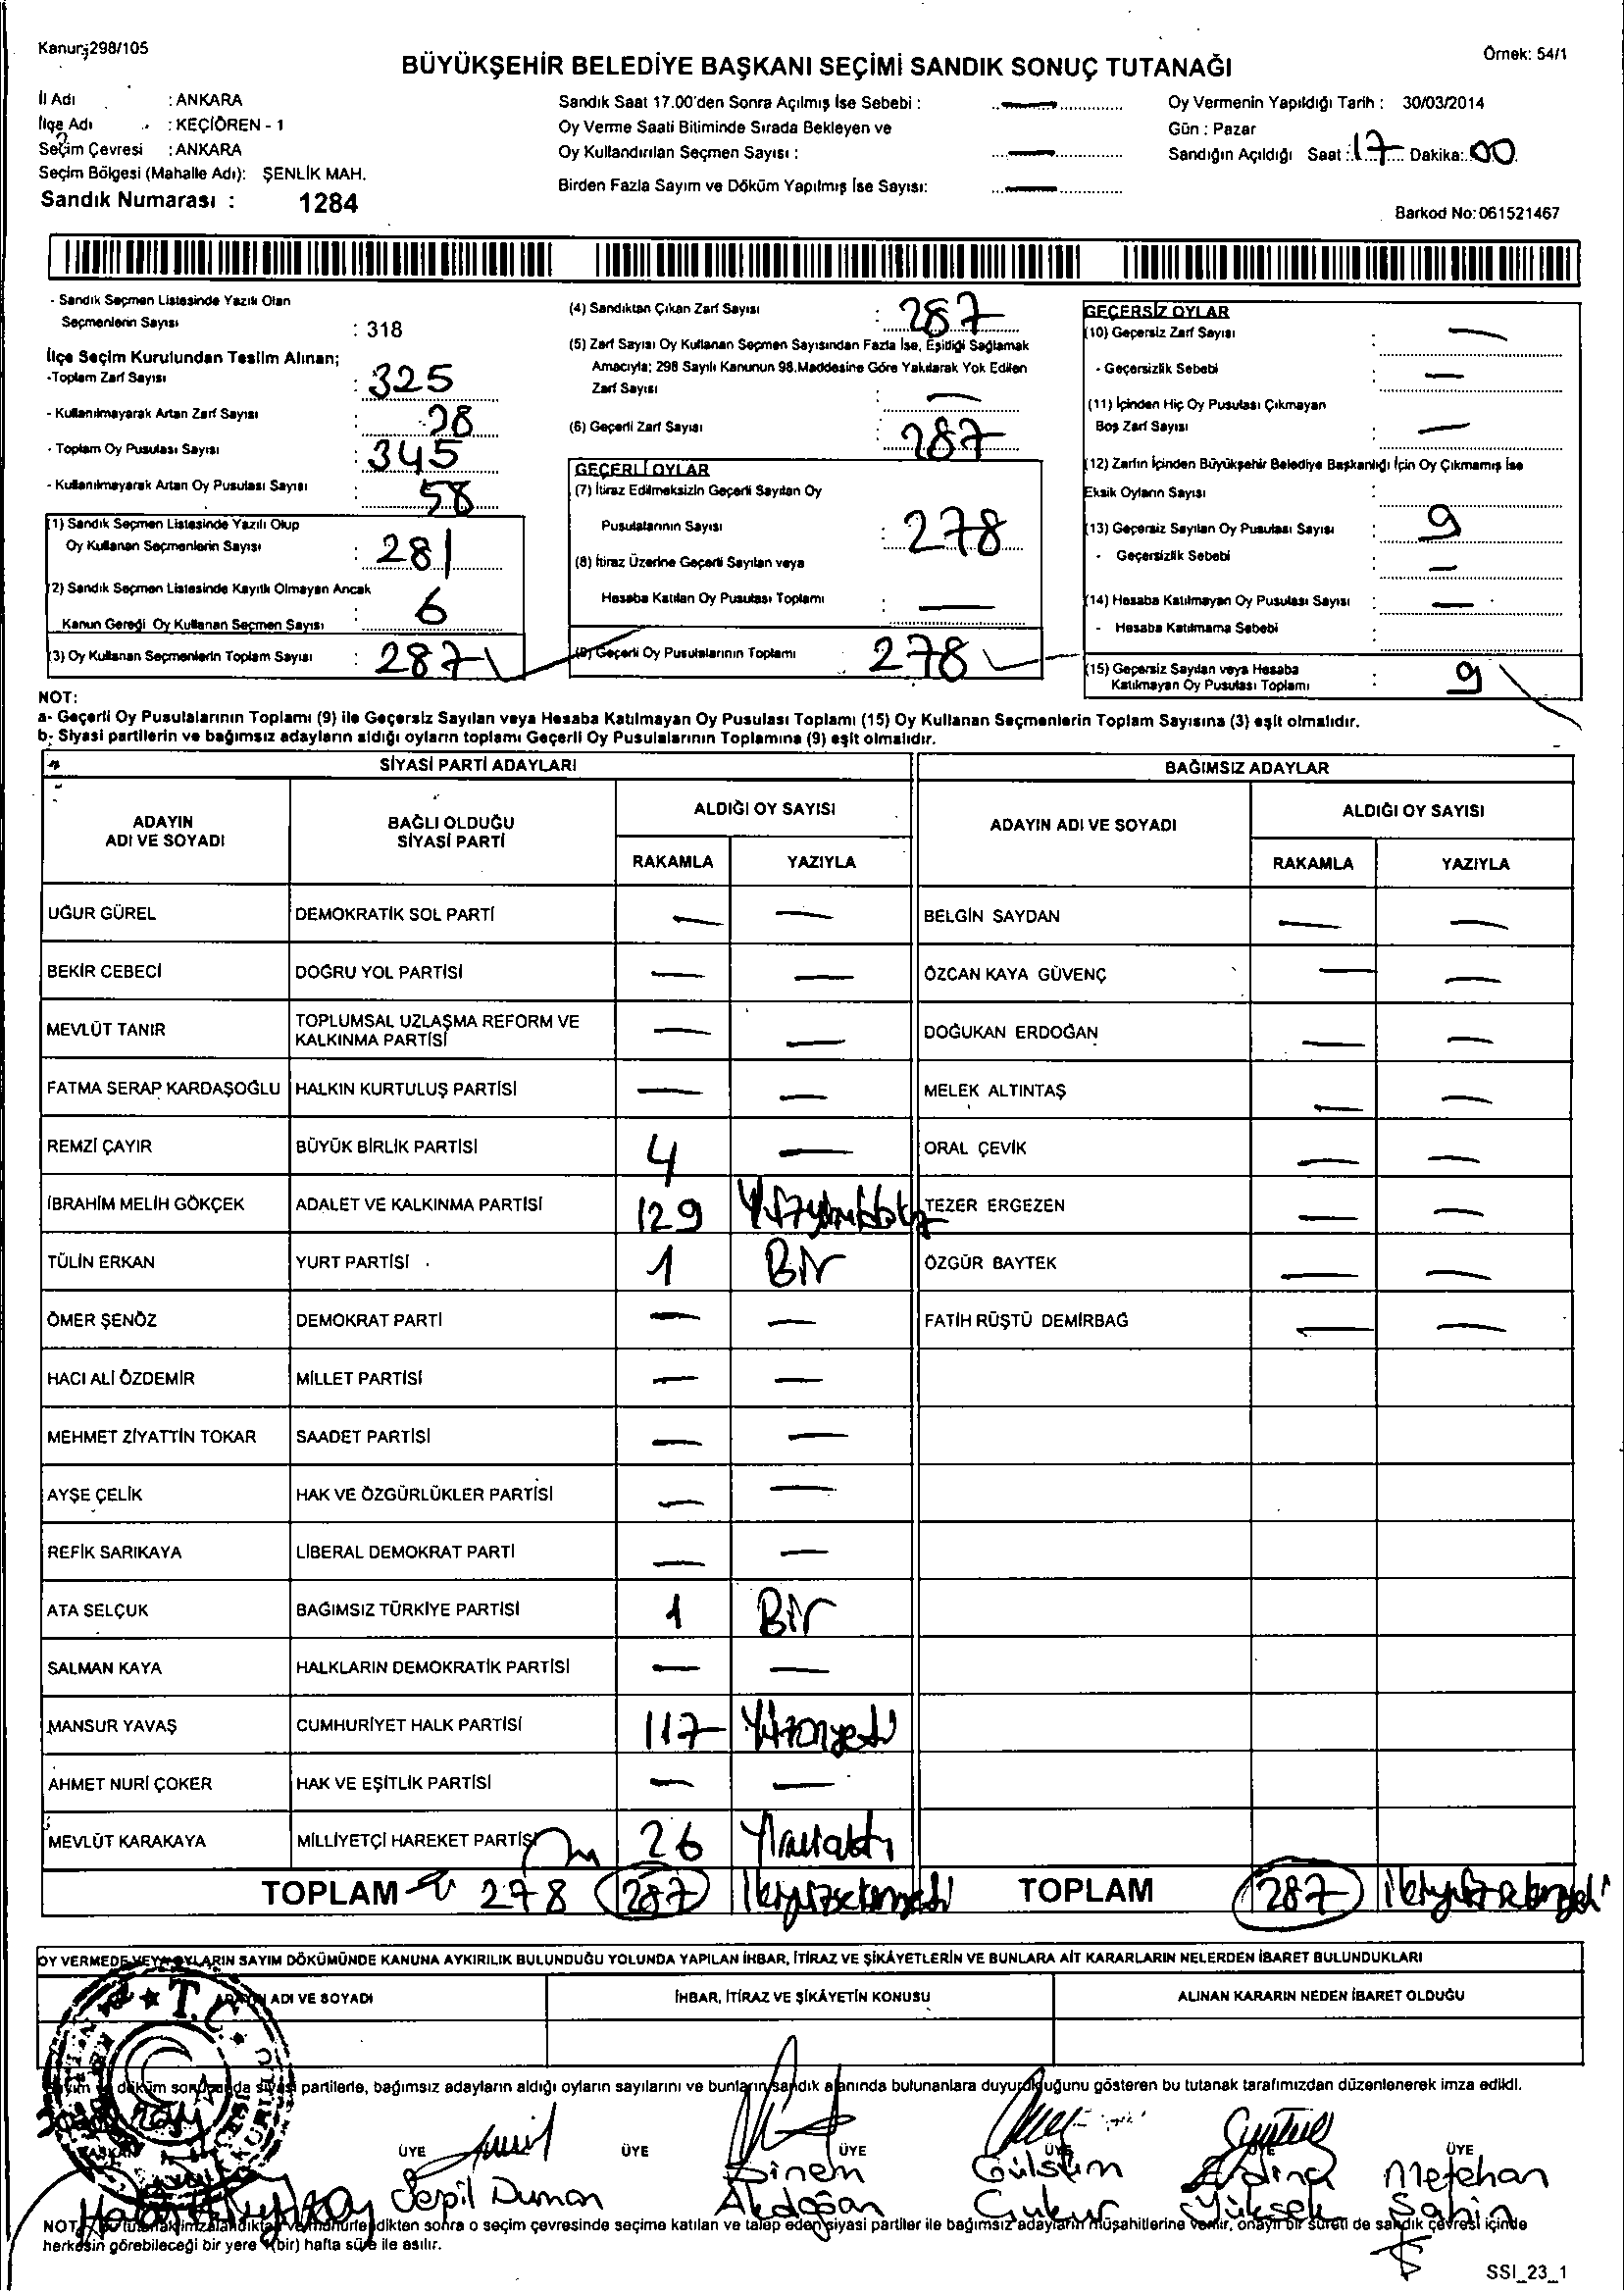 Kanun: 298/105
Örnek: 54/1
BÜYÜKŞEHİR BELEDİYE BAŞKANI SEÇİMİ SANDIK SONUÇ TUTANAĞI
İl Adı : ANKARA
İlçe Adı : KEÇİÖREN - 1
Seçim Çevresi : ANKARA
Seçim Bölgesi (Mahalle Adı): ŞENLİK MAH.
Sandık Numarası : 1284
Sandık Saat 17.00'den Sonra Açılmış İse Sebebi : —
Oy Verme Saati Bitiminde Sırada Bekleyen ve
Oy Kullandırılan Seçmen Sayısı : —
Birden Fazla Sayım ve Döküm Yapılmış İse Sayısı: —
Oy Vermenin Yapıldığı Tarih : 30/03/2014
Gün : Pazar
Sandığın Açıldığı Saat : 17 Dakika: 00
Barkod No: 061521467
- Sandık Seçmen Listesinde Yazılı Olan
Seçmenlerin Sayısı : 318
İlçe Seçim Kurulundan Teslim Alınan;
-Toplam Zarf Sayısı : 325
- Kullanılmayarak Artan Zarf Sayısı : 28
- Toplam Oy Pusulası Sayısı : 345
- Kullanılmayarak Artan Oy Pusulası Sayısı : 58
(1) Sandık Seçmen Listesinde Yazılı Olup
Oy Kullanan Seçmenlerin Sayısı : 281
(2) Sandık Seçmen Listesinde Kayıtlı Olmayan Ancak
Kanun Gereği Oy Kullanan Seçmen Sayısı : 6
(3) Oy Kullanan Seçmenlerin Toplam Sayısı : 287
(4) Sandıktan Çıkan Zarf Sayısı : 287
(5) Zarf Sayısı Oy Kullanan Seçmen Sayısından Fazla İse, Eşitliği Sağlamak
Amacıyla; 298 Sayılı Kanunun 98.Maddesine Göre Yakılarak Yok Edilen
Zarf Sayısı : —
(6) Geçerli Zarf Sayısı : 287
GEÇERLİ OYLAR
(7) İtiraz Edilmeksizin Geçerli Sayılan Oy
Pusulalarının Sayısı : 278
(8) İtiraz Üzerine Geçerli Sayılan veya
Hesaba Katılan Oy Pusulası Toplamı : —
(9) Geçerli Oy Pusulalarının Toplamı 278
GEÇERSİZ OYLAR
(10) Geçersiz Zarf Sayısı : —
- Geçersizlik Sebebi : —
(11) İçinden Hiç Oy Pusulası Çıkmayan
Boş Zarf Sayısı : —
(12) Zarfın İçinden Büyükşehir Belediye Başkanlığı İçin Oy Çıkmamış İse
Eksik Oyların Sayısı :
(13) Geçersiz Sayılan Oy Pusulası Sayısı : 9
- Geçersizlik Sebebi : —
(14) Hesaba Katılmayan Oy Pusulası Sayısı : —
- Hesaba Katılmama Sebebi :
(15) Geçersiz Sayılan veya Hesaba
Katılmayan Oy Pusulası Toplamı : 9
NOT:
a- Geçerli Oy Pusulalarının Toplamı (9) ile Geçersiz Sayılan veya Hesaba Katılmayan Oy Pusulası Toplamı (15) Oy Kullanan Seçmenlerin Toplam Sayısına (3) eşit olmalıdır.
b- Siyasi partilerin ve bağımsız adayların aldığı oyların toplamı Geçerli Oy Pusulalarının Toplamına (9) eşit olmalıdır.
SİYASİ PARTİ ADAYLARI
BAĞIMSIZ ADAYLAR
ADAYIN ADI VE SOYADI
BAĞLI OLDUĞU SİYASİ PARTİ
ALDIĞI OY SAYISI
ADAYIN ADI VE SOYADI
ALDIĞI OY SAYISI
RAKAMLA YAZIYLA RAKAMLA YAZIYLA
UĞUR GÜREL DEMOKRATİK SOL PARTİ — — BELGİN SAYDAN — —
BEKİR CEBECİ DOĞRU YOL PARTİSİ — — ÖZCAN KAYA GÜVENÇ — —
MEVLÜT TANIR TOPLUMSAL UZLAŞMA REFORM VE KALKINMA PARTİSİ — — DOĞUKAN ERDOĞAN — —
FATMA SERAP KARDAŞOĞLU HALKIN KURTULUŞ PARTİSİ — — MELEK ALTINTAŞ — —
REMZİ ÇAYIR BÜYÜK BİRLİK PARTİSİ 4 — ORAL ÇEVİK — —
İBRAHİM MELİH GÖKÇEK ADALET VE KALKINMA PARTİSİ 129 TEZER ERGEZEN — —
TÜLİN ERKAN YURT PARTİSİ 1 Bir ÖZGÜR BAYTEK — —
ÖMER ŞENÖZ DEMOKRAT PARTİ — — FATİH RÜŞTÜ DEMİRBAĞ — —
HACI ALİ ÖZDEMİR MİLLET PARTİSİ — —
MEHMET ZİYATTİN TOKAR SAADET PARTİSİ — —
AYŞE ÇELİK HAK VE ÖZGÜRLÜKLER PARTİSİ — —
REFİK SARIKAYA LİBERAL DEMOKRAT PARTİ — —
ATA SELÇUK BAĞIMSIZ TÜRKİYE PARTİSİ 1 Bir
SALMAN KAYA HALKLARIN DEMOKRATİK PARTİSİ — —
MANSUR YAVAŞ CUMHURİYET HALK PARTİSİ 117 Yüzonyedi
AHMET NURİ ÇOKER HAK VE EŞİTLİK PARTİSİ — —
MEVLÜT KARAKAYA MİLLİYETÇİ HAREKET PARTİSİ 26 Yirmialtı
TOPLAM 278 287 ikiyüzseksenyedi TOPLAM 287 ikiyüzseksenyedi
OY VERMEDE VEYA OYLARIN SAYIM DÖKÜMÜNDE KANUNA AYKIRILIK BULUNDUĞU YOLUNDA YAPILAN İHBAR, İTİRAZ VE ŞİKÂYETLERİN VE BUNLARA AİT KARARLARIN NELERDEN İBARET BULUNDUKLARI
ADAYIN ADI VE SOYADI
İHBAR, İTİRAZ VE ŞİKÂYETİN KONUSU
ALINAN KARARIN NEDEN İBARET OLDUĞU
T.C.
Sayım ve döküm sonucunda siyasi partilerle, bağımsız adayların aldığı oyların sayılarını ve bunların sandık alanında bulunanlara duyurulduğunu gösteren bu tutanak tarafımızdan düzenlenerek imza edildi.
BAŞKAN ÜYE ÜYE ÜYE ÜYE ÜYE ÜYE
Serpil Duman
Sinem Akdoğan
Gülsüm Çukur
Aydın Yüksek
Metehan Şahin
NOT: Bu tutanak imzalandıktan ve mühürlendikten sonra o seçim çevresinde seçime katılan ve talep eden siyasi partiler ile bağımsız adayların müşahitlerine verilir, onaylı bir sureti de sandık çevresi içinde
herkesin görebileceği bir yere 1(bir) hafta süre ile asılır.
SSI_23_1